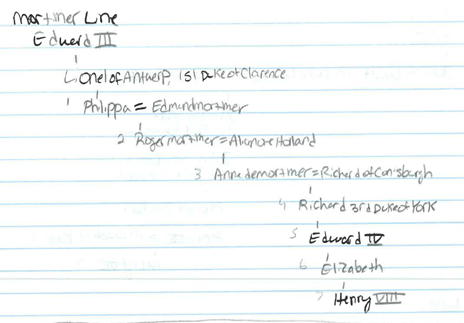 Mortimer Line
Edward III
Lionel of Antwerp, 1st Duke of Clarence
1 Philippa = Edmund mortimer
2 Roger mortimer = Alianore Holland
3 Anne de mortimer = Richard of Conisburgh
4 Richard 3rd Duke of York
5 Edward IV
6 Elizabeth
7 Henry VIII